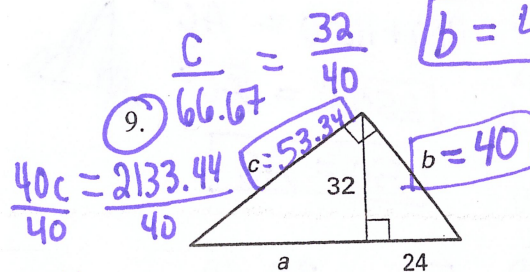 c/66.67 = 32/40
b =
9.
40c/40 = 2133.44/40
c = 53.34
b = 40
32
a
24